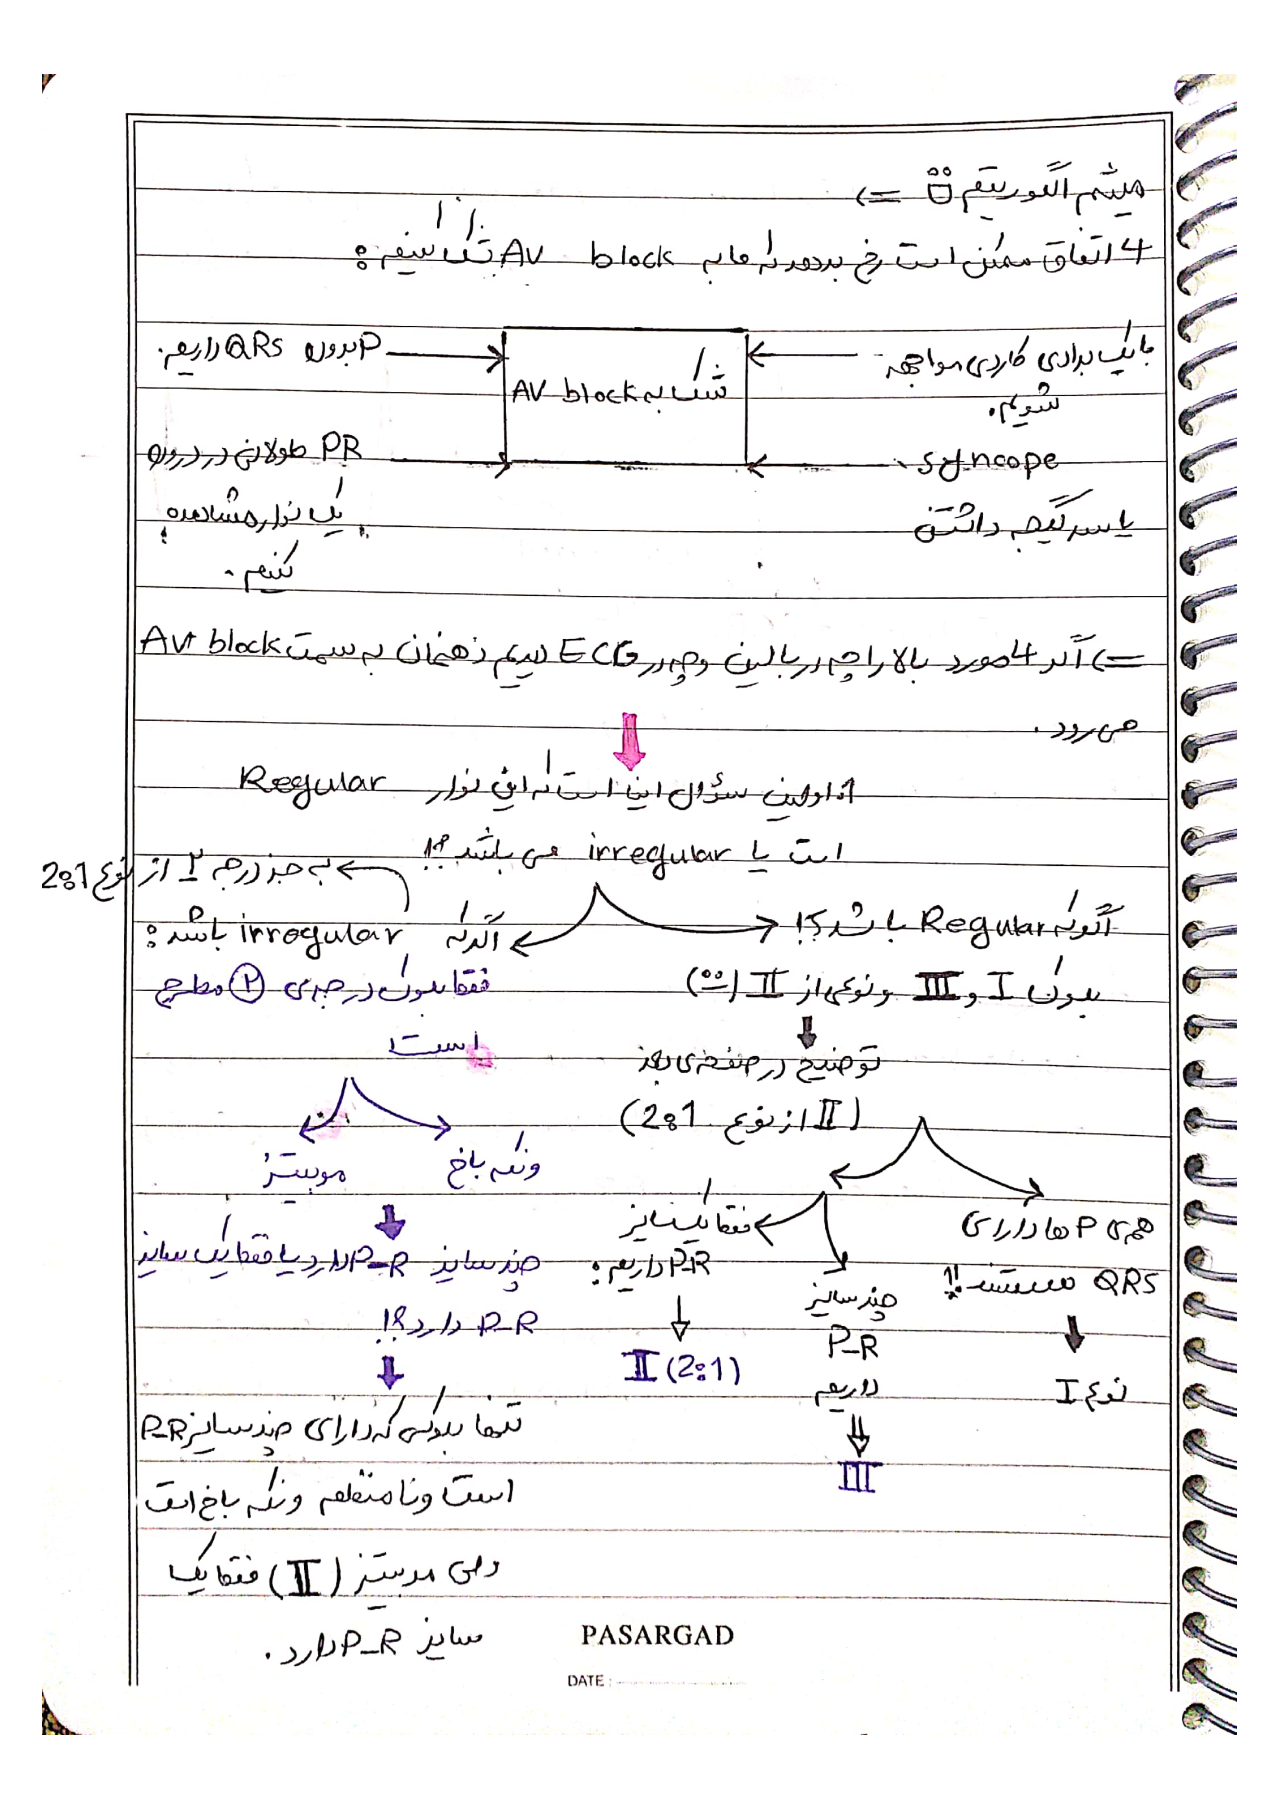 میثم الگوریتم =>
4 اتفاق ممکن است رخ بدهد که ما به AV block شک کنیم:
با یک برادی کاردی مواجهه شویم.
syncope
یا سرگیجه داشتن
شک به AV block
P بدون QRS داریم.
PR طولانی در درون
یک نوار مشاهده
کنیم.
=> اگر 4 مورد بالا را چه در بالین و چه در ECG دیدیم ذهنمان به سمت AV block
می رود.
اولین سؤال اینا است که این نوار Regular
است یا irregular می باشد؟!
به جز درجه ۲ از نوع 2:1
اگر که Regular باشد؟!
بلوک I و III و نوعی از II
توضیح در صفحه ی بعد
(II از نوع 2:1)
همه ی P ها دارای
QRS هستند!!
نوع I
چند سایز
P-R
داریم
III
فقط یک سایز
P-R داریم:
II (2:1)
اگر که irregular باشد:
فقط بلوک درجه ی ۲ مطرح
است:
ونکه باخ
موبیتز
چند سایز P-R دارد یا فقط یک سایز
P-R دارد؟!!
تنها بلوکی که دارای چند سایز P-R
است و نامنظم ونکه باخ است
ولی موبیتز (II) فقط یک
سایز P-R دارد.
PASARGAD
DATE :